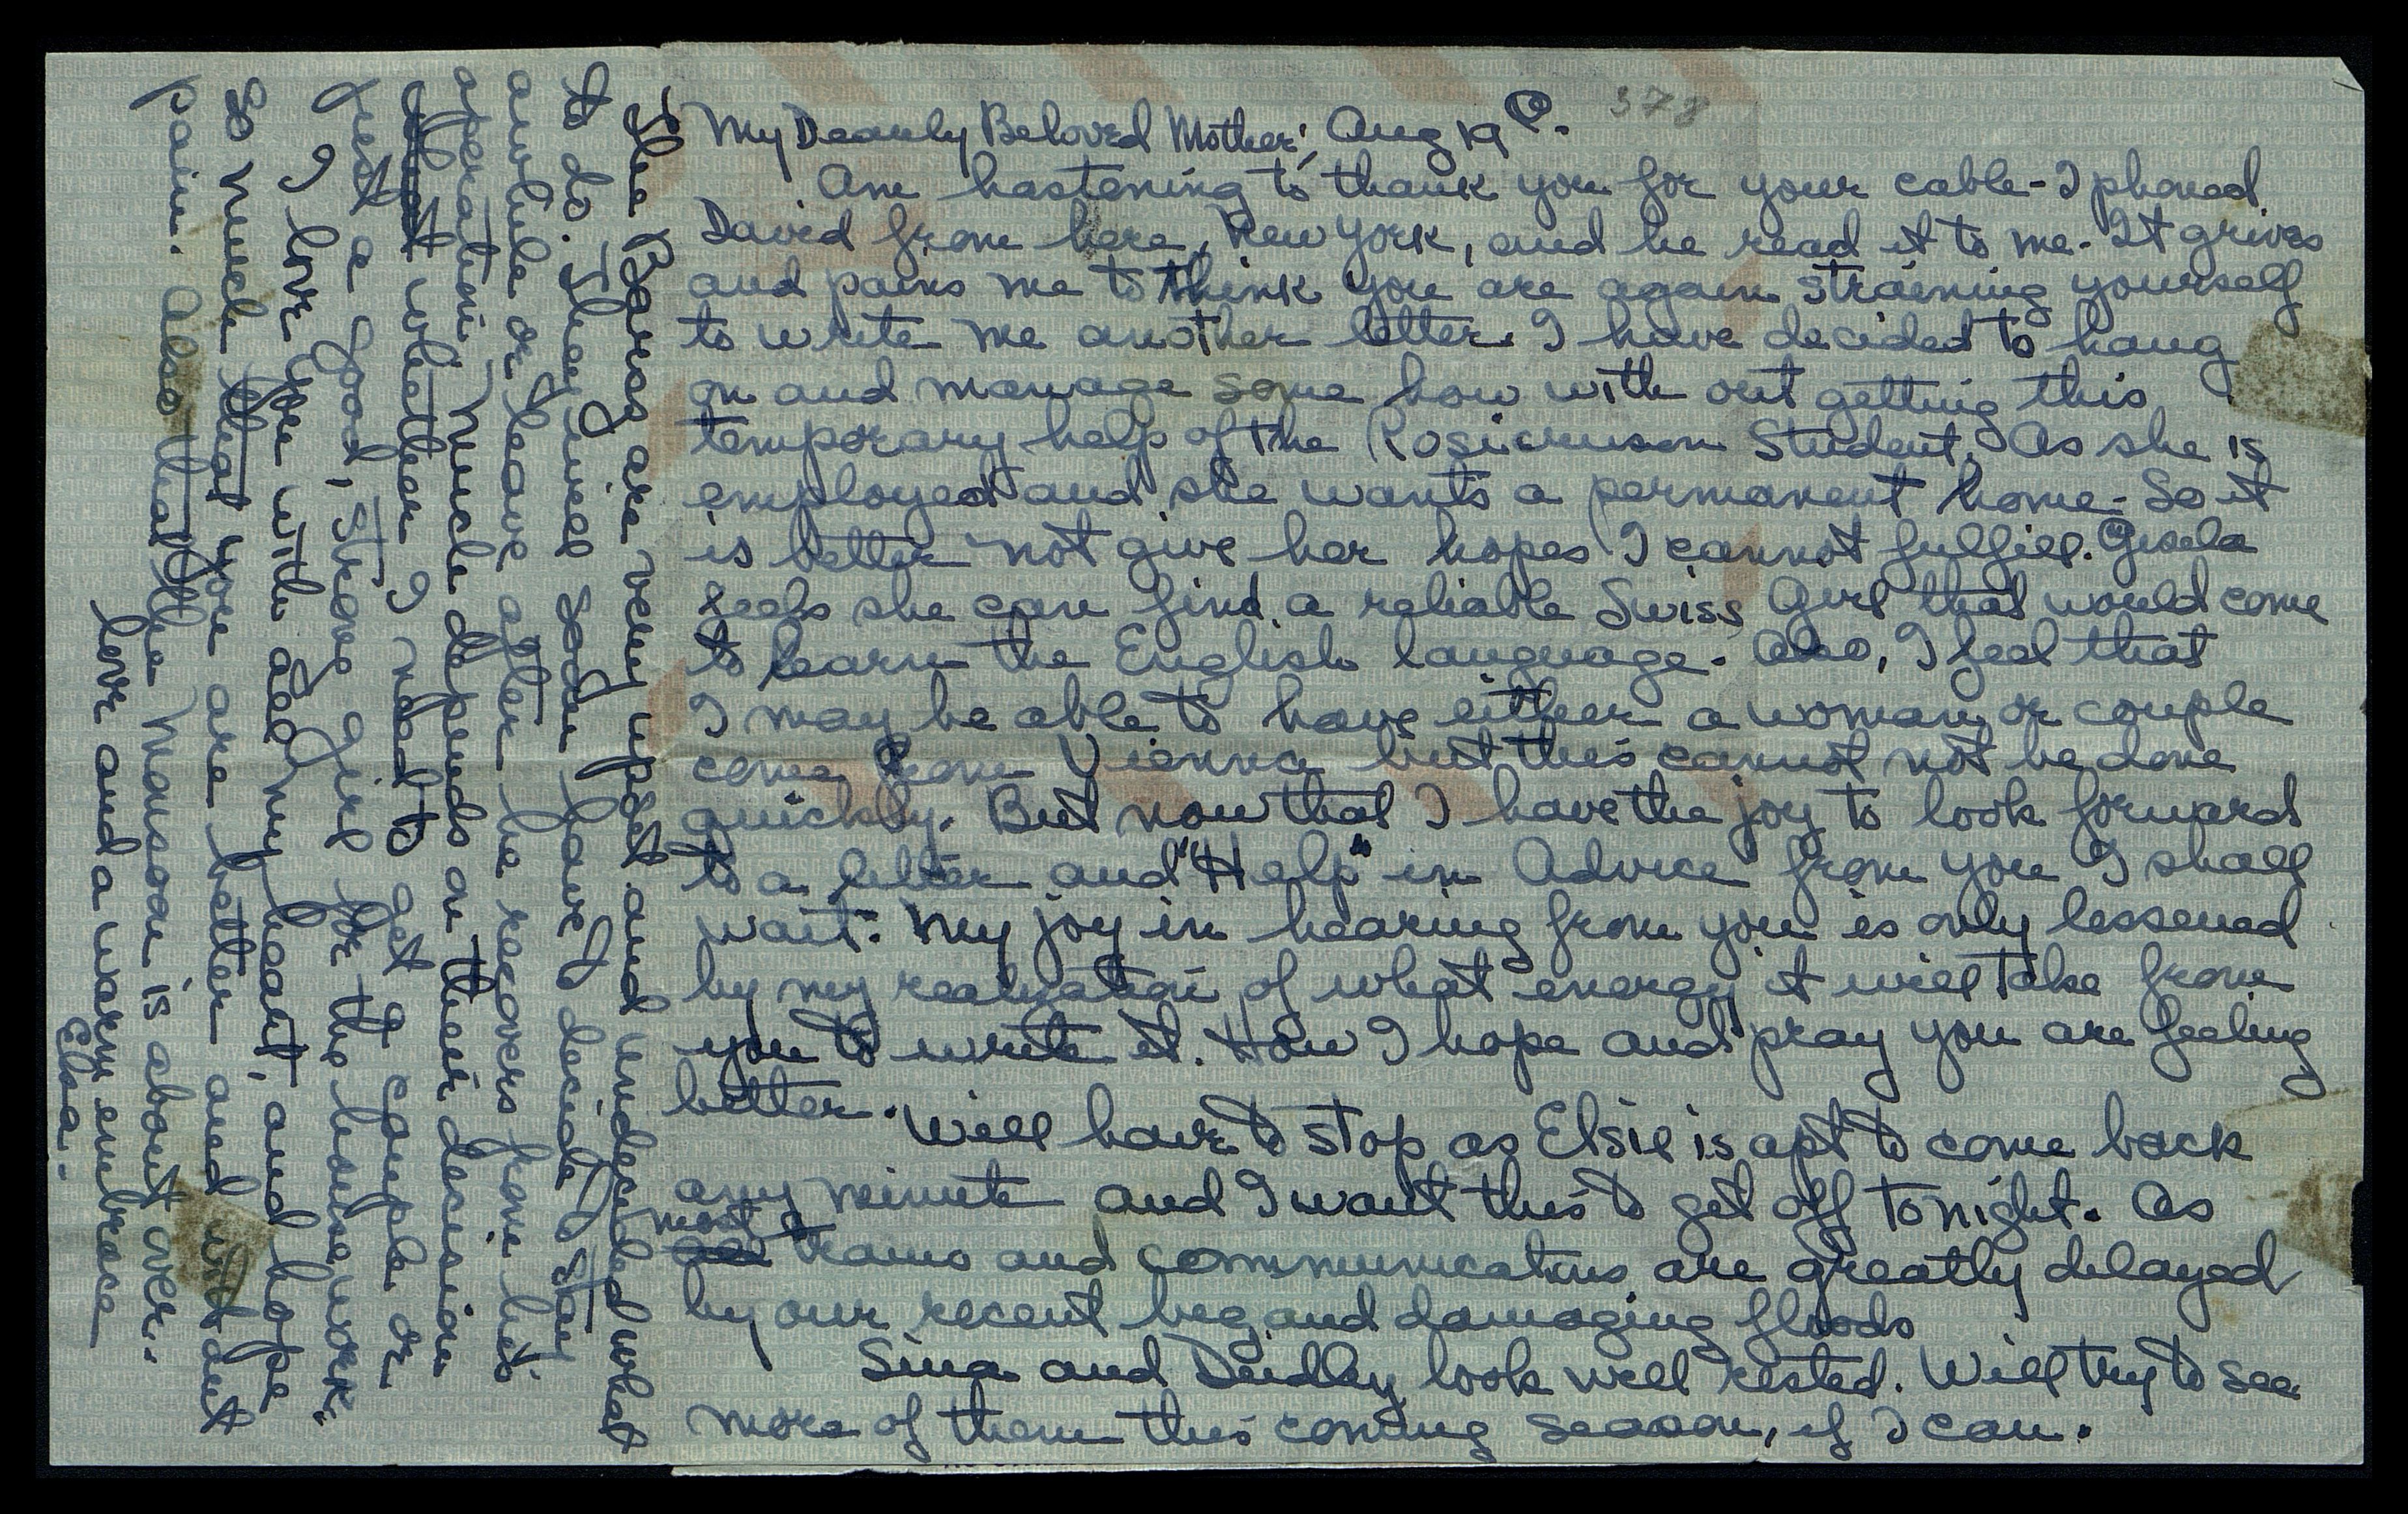 My Dearly Beloved Mother; Aug 19
378
Am hastening to thank you for your cable - I phoned
David from here, New York, and he read it to me - It grives
and pains me to think you are again straining yourself
to write me another letter. I have decided to hang
on and manage some how with out getting this
temporary help of the Student. As she is
employed and she wants a permanent home - So it
is better not give her hopes I cannot fulfill. Gisela
feels she can find a reliable Swiss Girl that would come
to learn the English language. Also, I feel that
I may be able to have either a woman or couple
come from Vienna but this cannot not be done
quickly. But now that I have the joy to look forward
to a letter and "Help" in Advice from you I shall
wait. My joy in hearing from you is only lessened
by my realization of what energy it will take from
you to write it. How I hope and pray you are feeling
better.
Will have to stop as Elsie is apt to come back
any minute and I want this to get off tonight. As
most
trains and communications are greatly delayed
by our recent big and damaging floods
Sina and Dudley look well rested. Will try to see
more of them this coming season, if I can.
The Bargs are very upset and undecided what
to do. They will soon have to decide to stay
awhile or leave after he recovers from his
operation. Much depends on their decision
whether I need to get a couple or
just a good, strong girl for the house work.
I love you with all my heart, and hope
so much that you are better and without
pain. Also that the Monsoon is about over.
love and a warm embrace
Elsa.